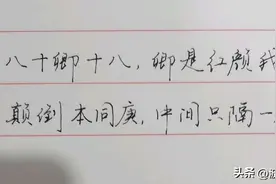 八十卿十八，卿是红颜我
颠倒本同庚，中间只隔一
头条